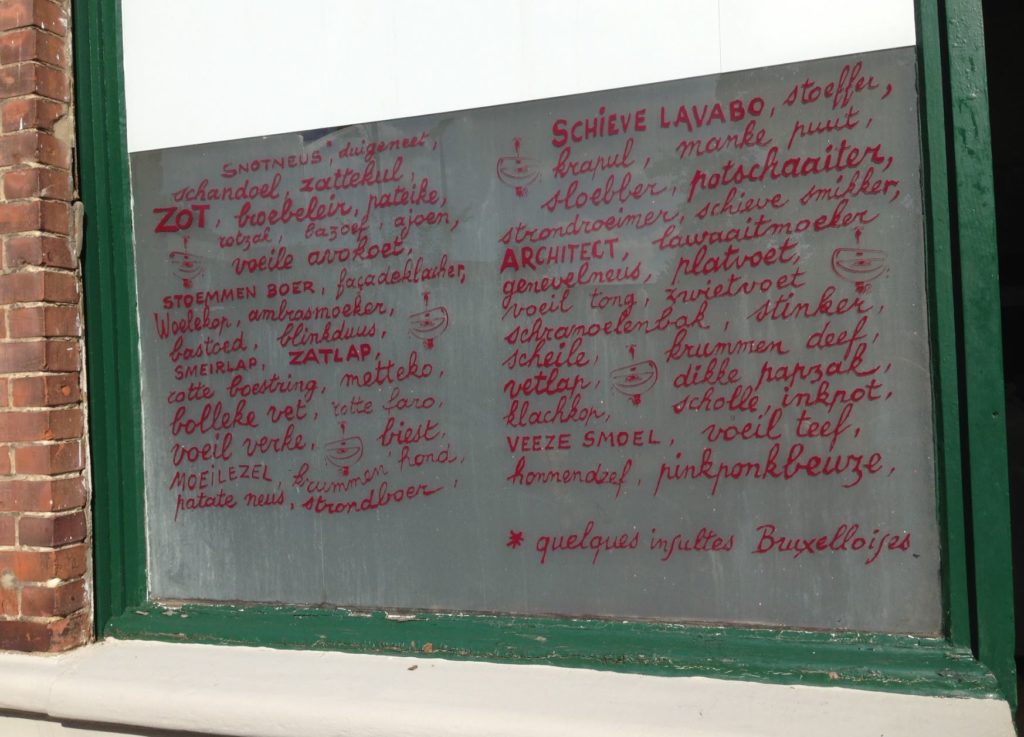 SNOTNEUS*, duigeneet,
schandoel, zattekul,
ZOT, broebeleir, pateike,
rotzak, bazoef, ajoen,
voeile avokoet,
STOEMMEN BOER, façadeklacher,
Woelekop, ambrasmoeker,
bastoed, blinkduus,
SMEIRLAP, ZATLAP,
rotte boestring, metteko,
bolleke vet, rotte faro,
voeil verke, biest,
MOEILEZEL, krummen hond,
patate neus, strondboer,
SCHIEVE LAVABO, stoeffer,
krapul, manke puut,
sloebber, potschaaiter,
strondroeimer, schieve smikker,
ARCHITECT, lawaaitmoeker
genevelneus, platvoet,
voeil tong, zwietvoet
schranoelenbak, stinker,
scheile, krummen deef,
vetlap, dikke papzak,
klachkop, scholle, inkpot,
VEEZE SMOEL, voeil teef,
honnendzef, pinkponkbeuze,
* quelques insultes Bruxelloises